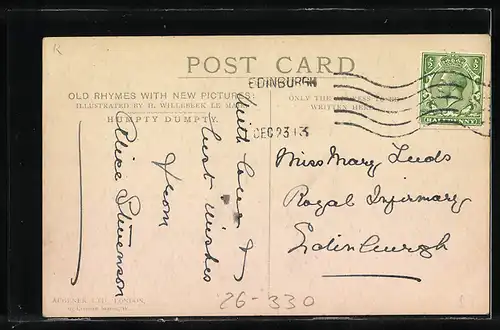 POST CARD
OLD RHYMES WITH NEW PICTURES:
ILLUSTRATED BY H. WILLEBEEK LE MAIR
HUMPTY DUMPTY.
ONLY THE ADDRESS TO BE
WRITTEN HERE
EDINBURGH
DEC 23 13
HALFPENNY
With love &
best wishes
from
Alice Stevenson
Miss Mary
Royal Infirmary
Edinburgh
AUGENER LTD. LONDON,
26-330
R